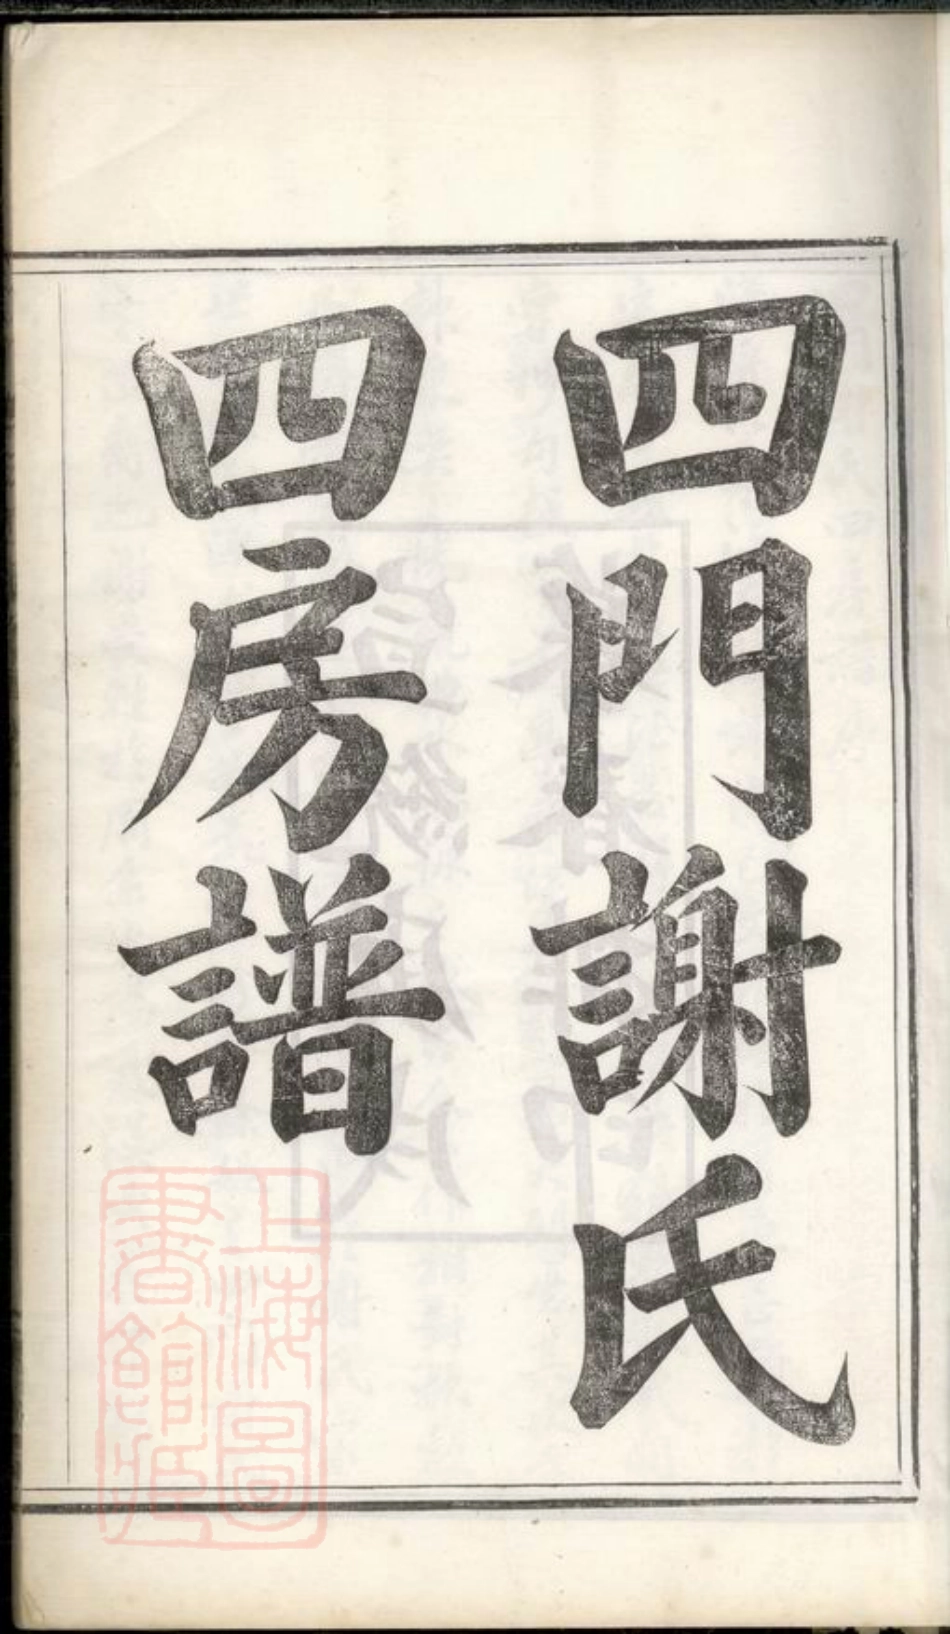 四門謝氏
四房譜
上海圖
書館藏